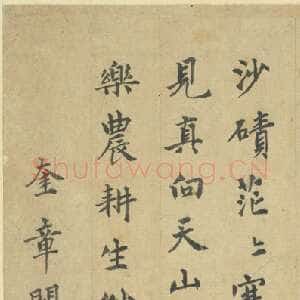 沙磧茫〻
見真向天山
樂農耕生
奎章
Shufawang.CN